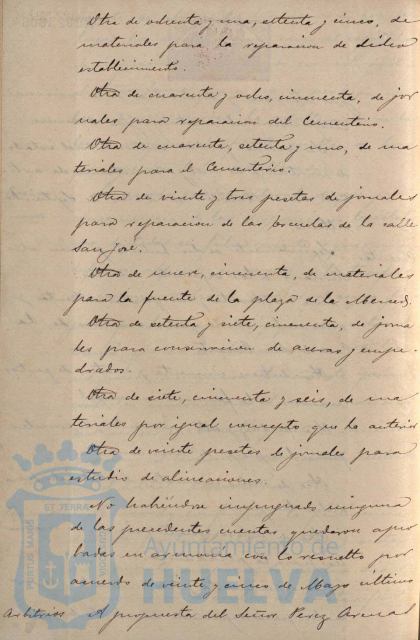 Otra de ochenta y una, setenta y cinco, de
materiales para la reparacion de dicho
establecimiento.
Otra de cuarenta y ocho, cincuenta, de jor
nales para reparacion del Cementerio.
Otra de cuarenta, setenta y uno, de ma
teriales para el Cementerio.
Otra de veinte y tres pesetas de jornales
para reparacion de las Escuelas de la calle
San José.
Otra de nueve, cincuenta, de materiales
para la fuente de la plaza de la Merced.
Otra de setenta y siete, cincuenta, de jorna
les para conservacion de aceras y empe
drados.
Otra de siete, cincuenta y seis, de ma
teriales por igual concepto que la anterior
Otra de veinte pesetas de jornales para
estudio de alineaciones.
No habiéndose impugnado ninguna
de las precedentes cuentas, quedaron apro
badas en armonia con lo resuelto por
acuerdo de veinte y cinco de Mayo último
Arbitrios A propuesta del Señor Perez Arenas
Ayuntamiento de
HUELVA
PORTUS MARIS
ET TERRAE